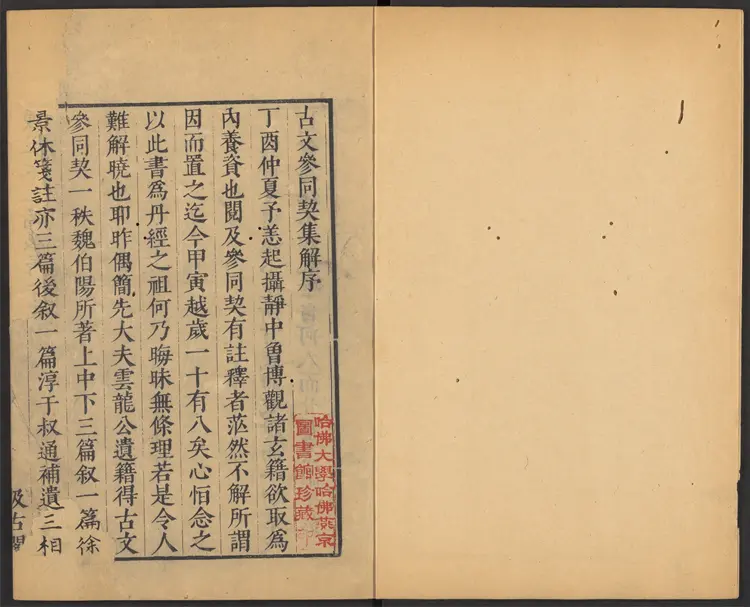 古文參同契集解序
丁酉仲夏予恙起攝靜中曾博觀諸玄籍欲取爲
內養資也閱及參同契有註釋者茫然不解所謂
因而置之迄今甲寅越歲一十有八矣心恒念之
以此書爲丹經之祖何乃晦昧無條理若是令人
難解曉也耶昨偶簡先大夫雲龍公遺籍得古文
參同契一秩魏伯陽所著上中下三篇叙一篇徐
景休箋註亦三篇後叙一篇淳于叔通補遺三相
汲古閣
哈佛大學哈佛燕京
圖書館珍藏印